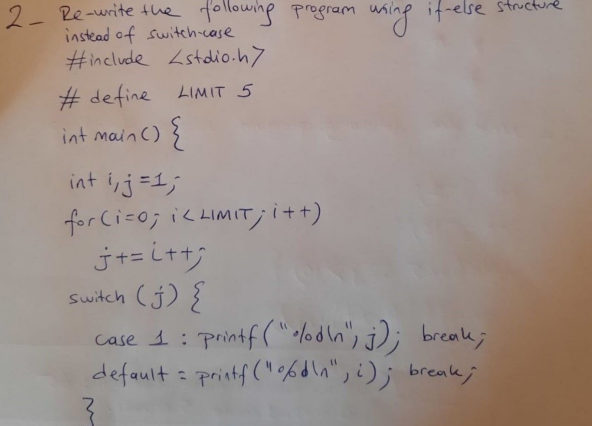 2- Re-write the following program using if-else structure
instead of switch-case
#include <stdio.h>
# define LIMIT 5
int main() {
int i,j=1;
for(i=0; i<LIMIT; i++)
j+=i++;
switch (j) {
case 1 : printf("%d\n", j); break;
default = printf("%d\n", i); break;
}